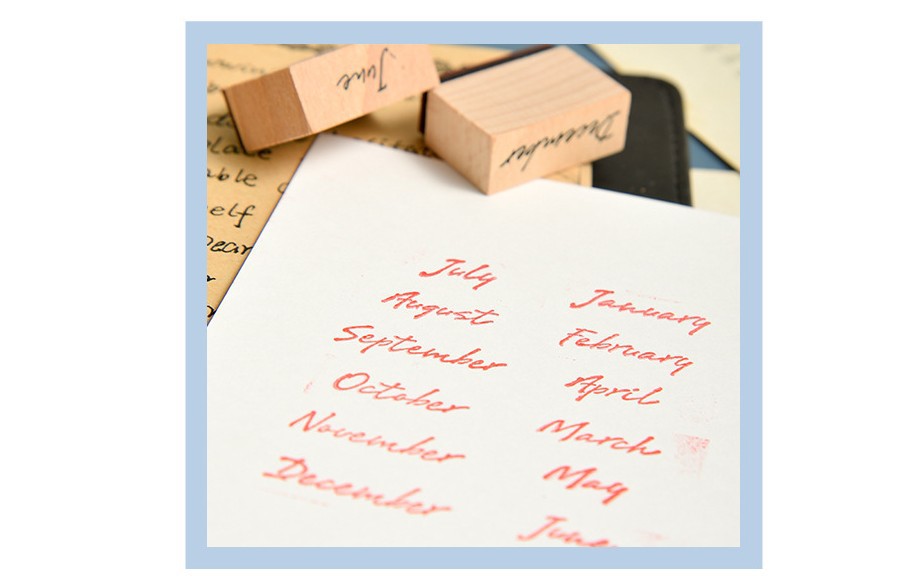 June
December
July
August
September
October
November
December
January
February
April
March
May
June
able
elf